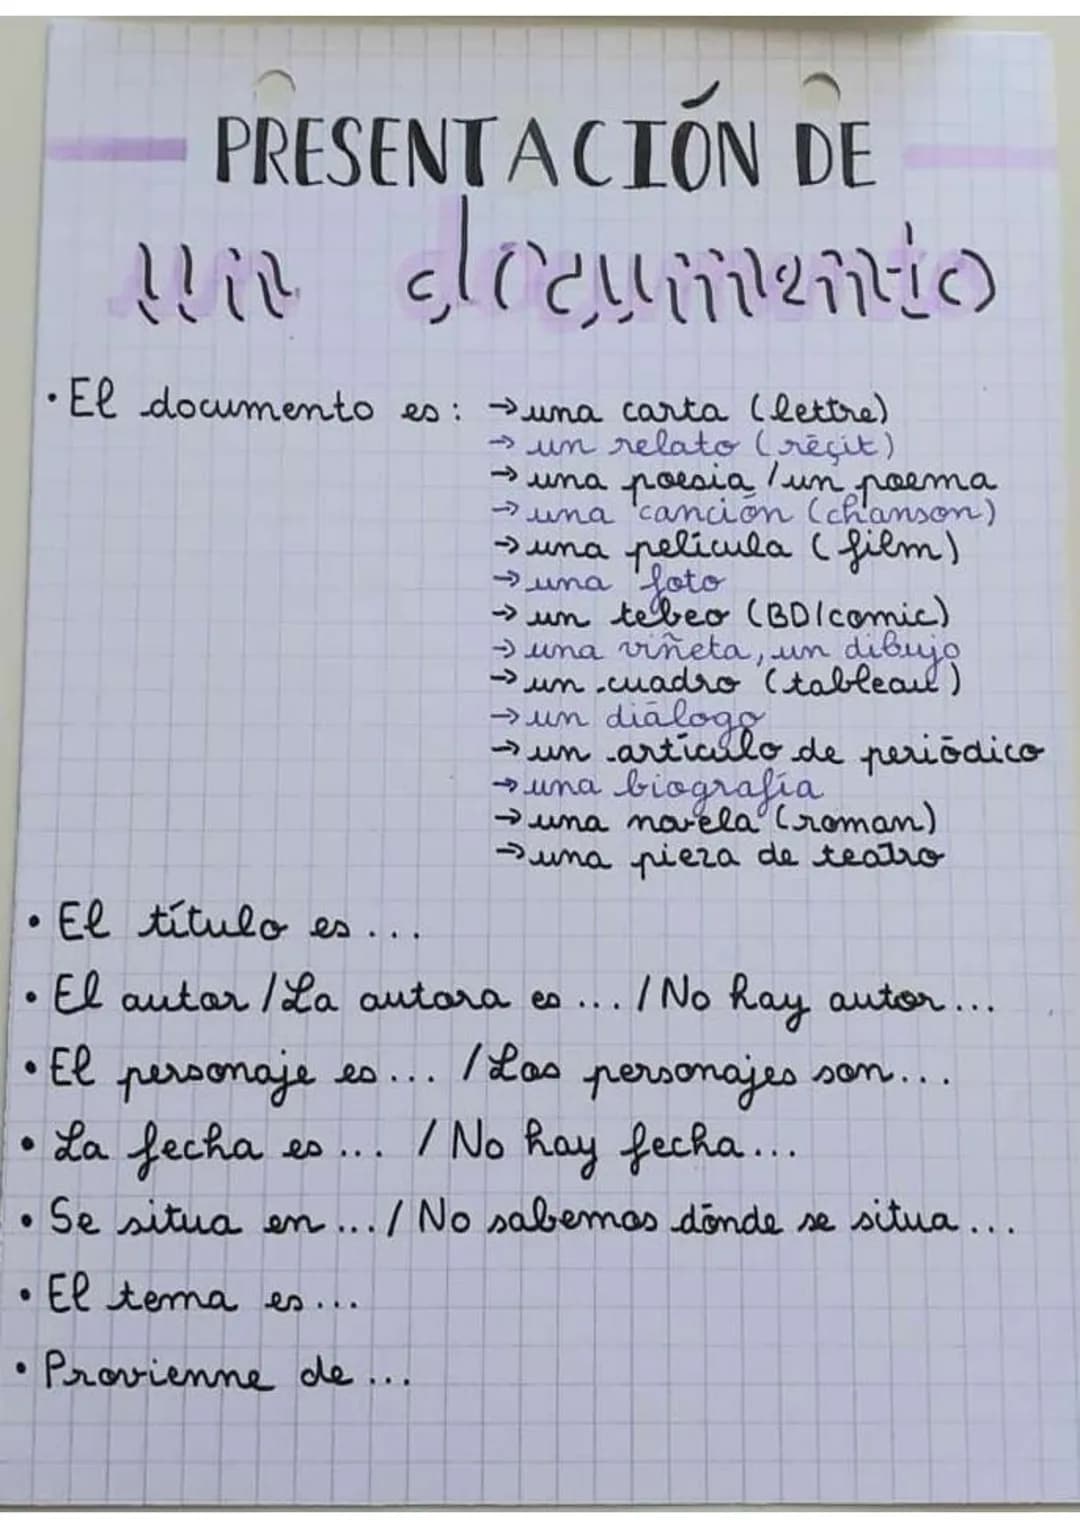 PRESENTACIÓN DE
un documento
• El documento es: → una carta (lettre)
→ un relato (récit)
→ una poesia / un poema
→ una canción (chanson)
→ una película (film)
→ una foto
→ un tebeo (BD/comic)
→ una viñeta, un dibujo
→ un cuadro (tableau)
→ un diálogo
→ un artículo de periódico
→ una biografía
→ una novela (roman)
→ una pieza de teatro
• El título es...
• El autor / La autora es ... / No hay autor...
• El personaje es... / Los personajes son...
• La fecha es ... / No hay fecha...
• Se situa en ... / No sabemos dónde se situa ...
• El tema es...
• Provienne de ...